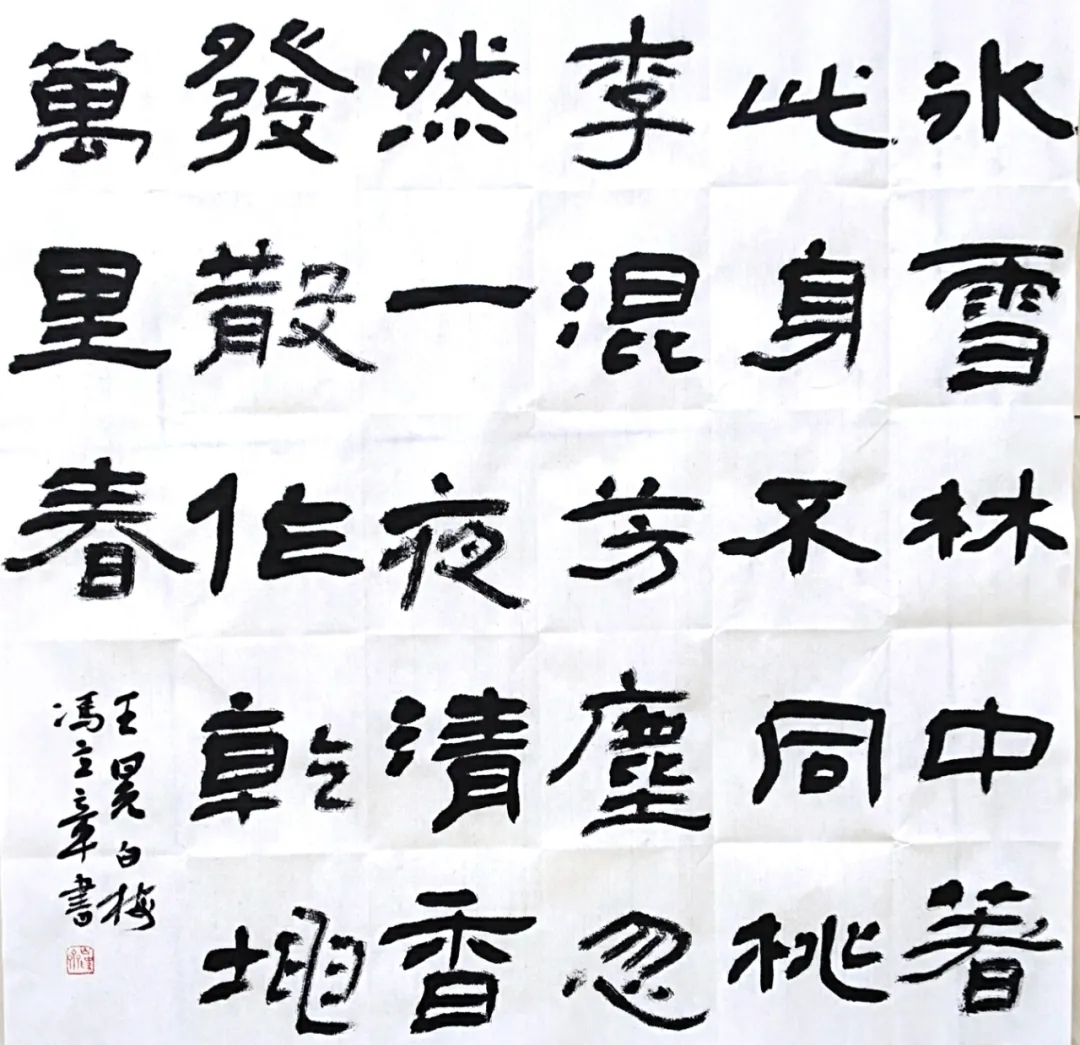 氷雪林中著
此身不同桃
李混芳塵忽
然一夜清香
發散作乾坤
萬里春
王冕白梅
冯立章書